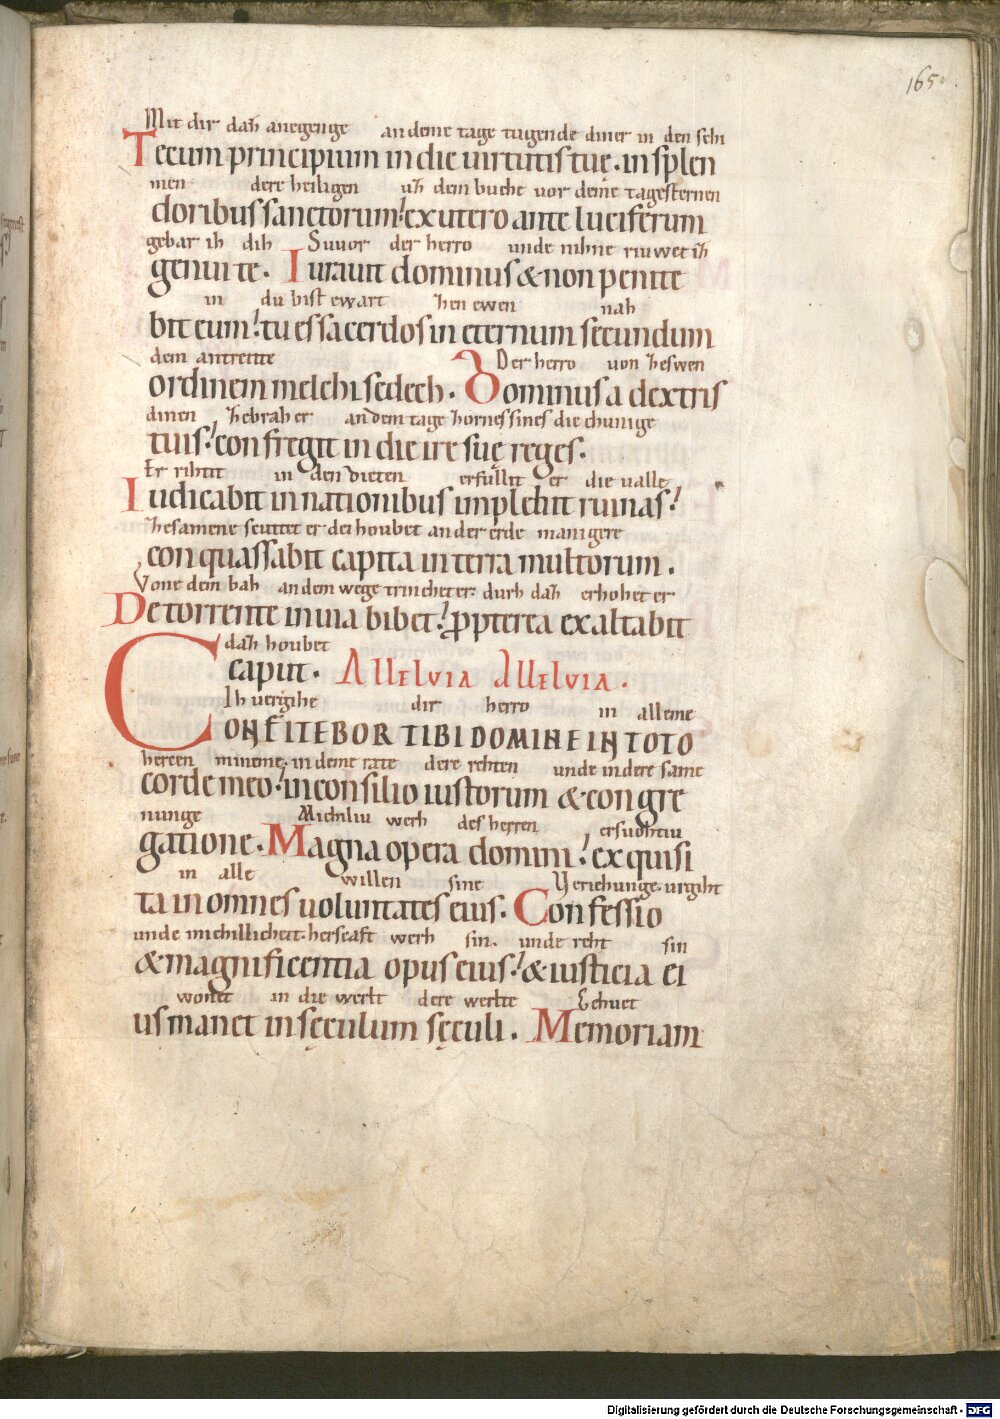 165
Mit dir daz anegenge an deme tage tugende diner in den schi
Tecum principium in die uirtutis tuę. in splen
men dere heiligen uz dem buche vor deme tagesternen
doribus sanctorum! ex utero ante luciferum
gebar ih dih Suuor der herro unde nihne riuwet ih
genui te. Iurauit dominus & non penite
in du bist ewart zen ewen nah
bit eum! tu es sacerdos in eternum secundum
dem antreitte Der herro von zeswen
ordinem melchisedech. Dominus a dextris
dinen zebrah er an dem tage zornes sines die chunige
tuis! confregit in die ire suę reges.
Er rihtit in den dieten erfullit er die ualle
Iudicabit in nationibus implebit ruinas!
zesamene scuttet er dei houbet an der erde manigere
conquassabit capita in terra multorum.
Vone dem bah an dem wege trinchet er durh daz erhohet er
De torrente in uia bibet! ppterea exaltabit
daz houbet
caput. Alleluia alleluia.
Ih uergihe dir herro in alleme
CONFITEBOR TIBI DOMINE IN TOTO
hercen mineme. in deme rate dere rehten unde in dere same
corde meo! in consilio iustorum & congre
nunge Michiliu werh des herren ersuohtiu
gatione. Magna opera domini! exquisi
in alle willen sine Yeriehunge. urgiht
ta in omnes uoluntates eius. Confessio
unde michillicheit. herscaft werh sin. unde reht sin
& magnificentia opus eius! & iusticia ei
wonet in die werlt dere werlte Gehuct
us manet in sęculum sęculi. Memoriam
Digitalisierung gefördert durch die Deutsche Forschungsgemeinschaft - DFG